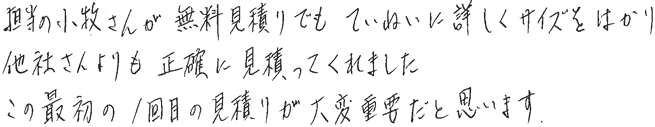 担当の小牧さんが無料見積りでもていねいに詳しくサイズをはかり
他社さんよりも正確に見積ってくれました
この最初の1回目の見積りが大変重要だと思います.